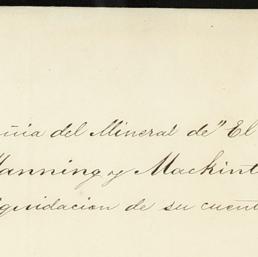 ñia del Mineral de "El
Manning y Mackint
iquidacion de su cuent